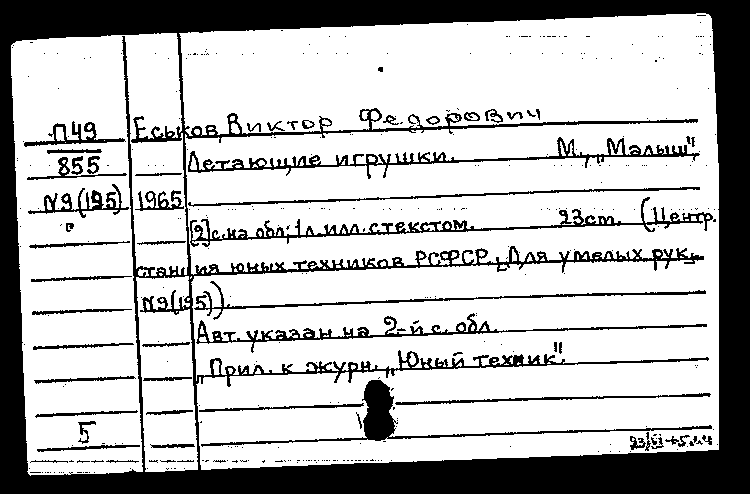 П49 Еськов, Виктор Федорович
855 Летающие игрушки. М., „Малыш",
N9(195) 1965.
[2] с. на обл; 1 л. илл. с текстом. 23cm. (Центр.
станция юных техников РСФСР. „Для умелых рук„
N9(195)).
Авт. указан на 2-й с. обл.
„Прил. к журн. „Юный техник".
5